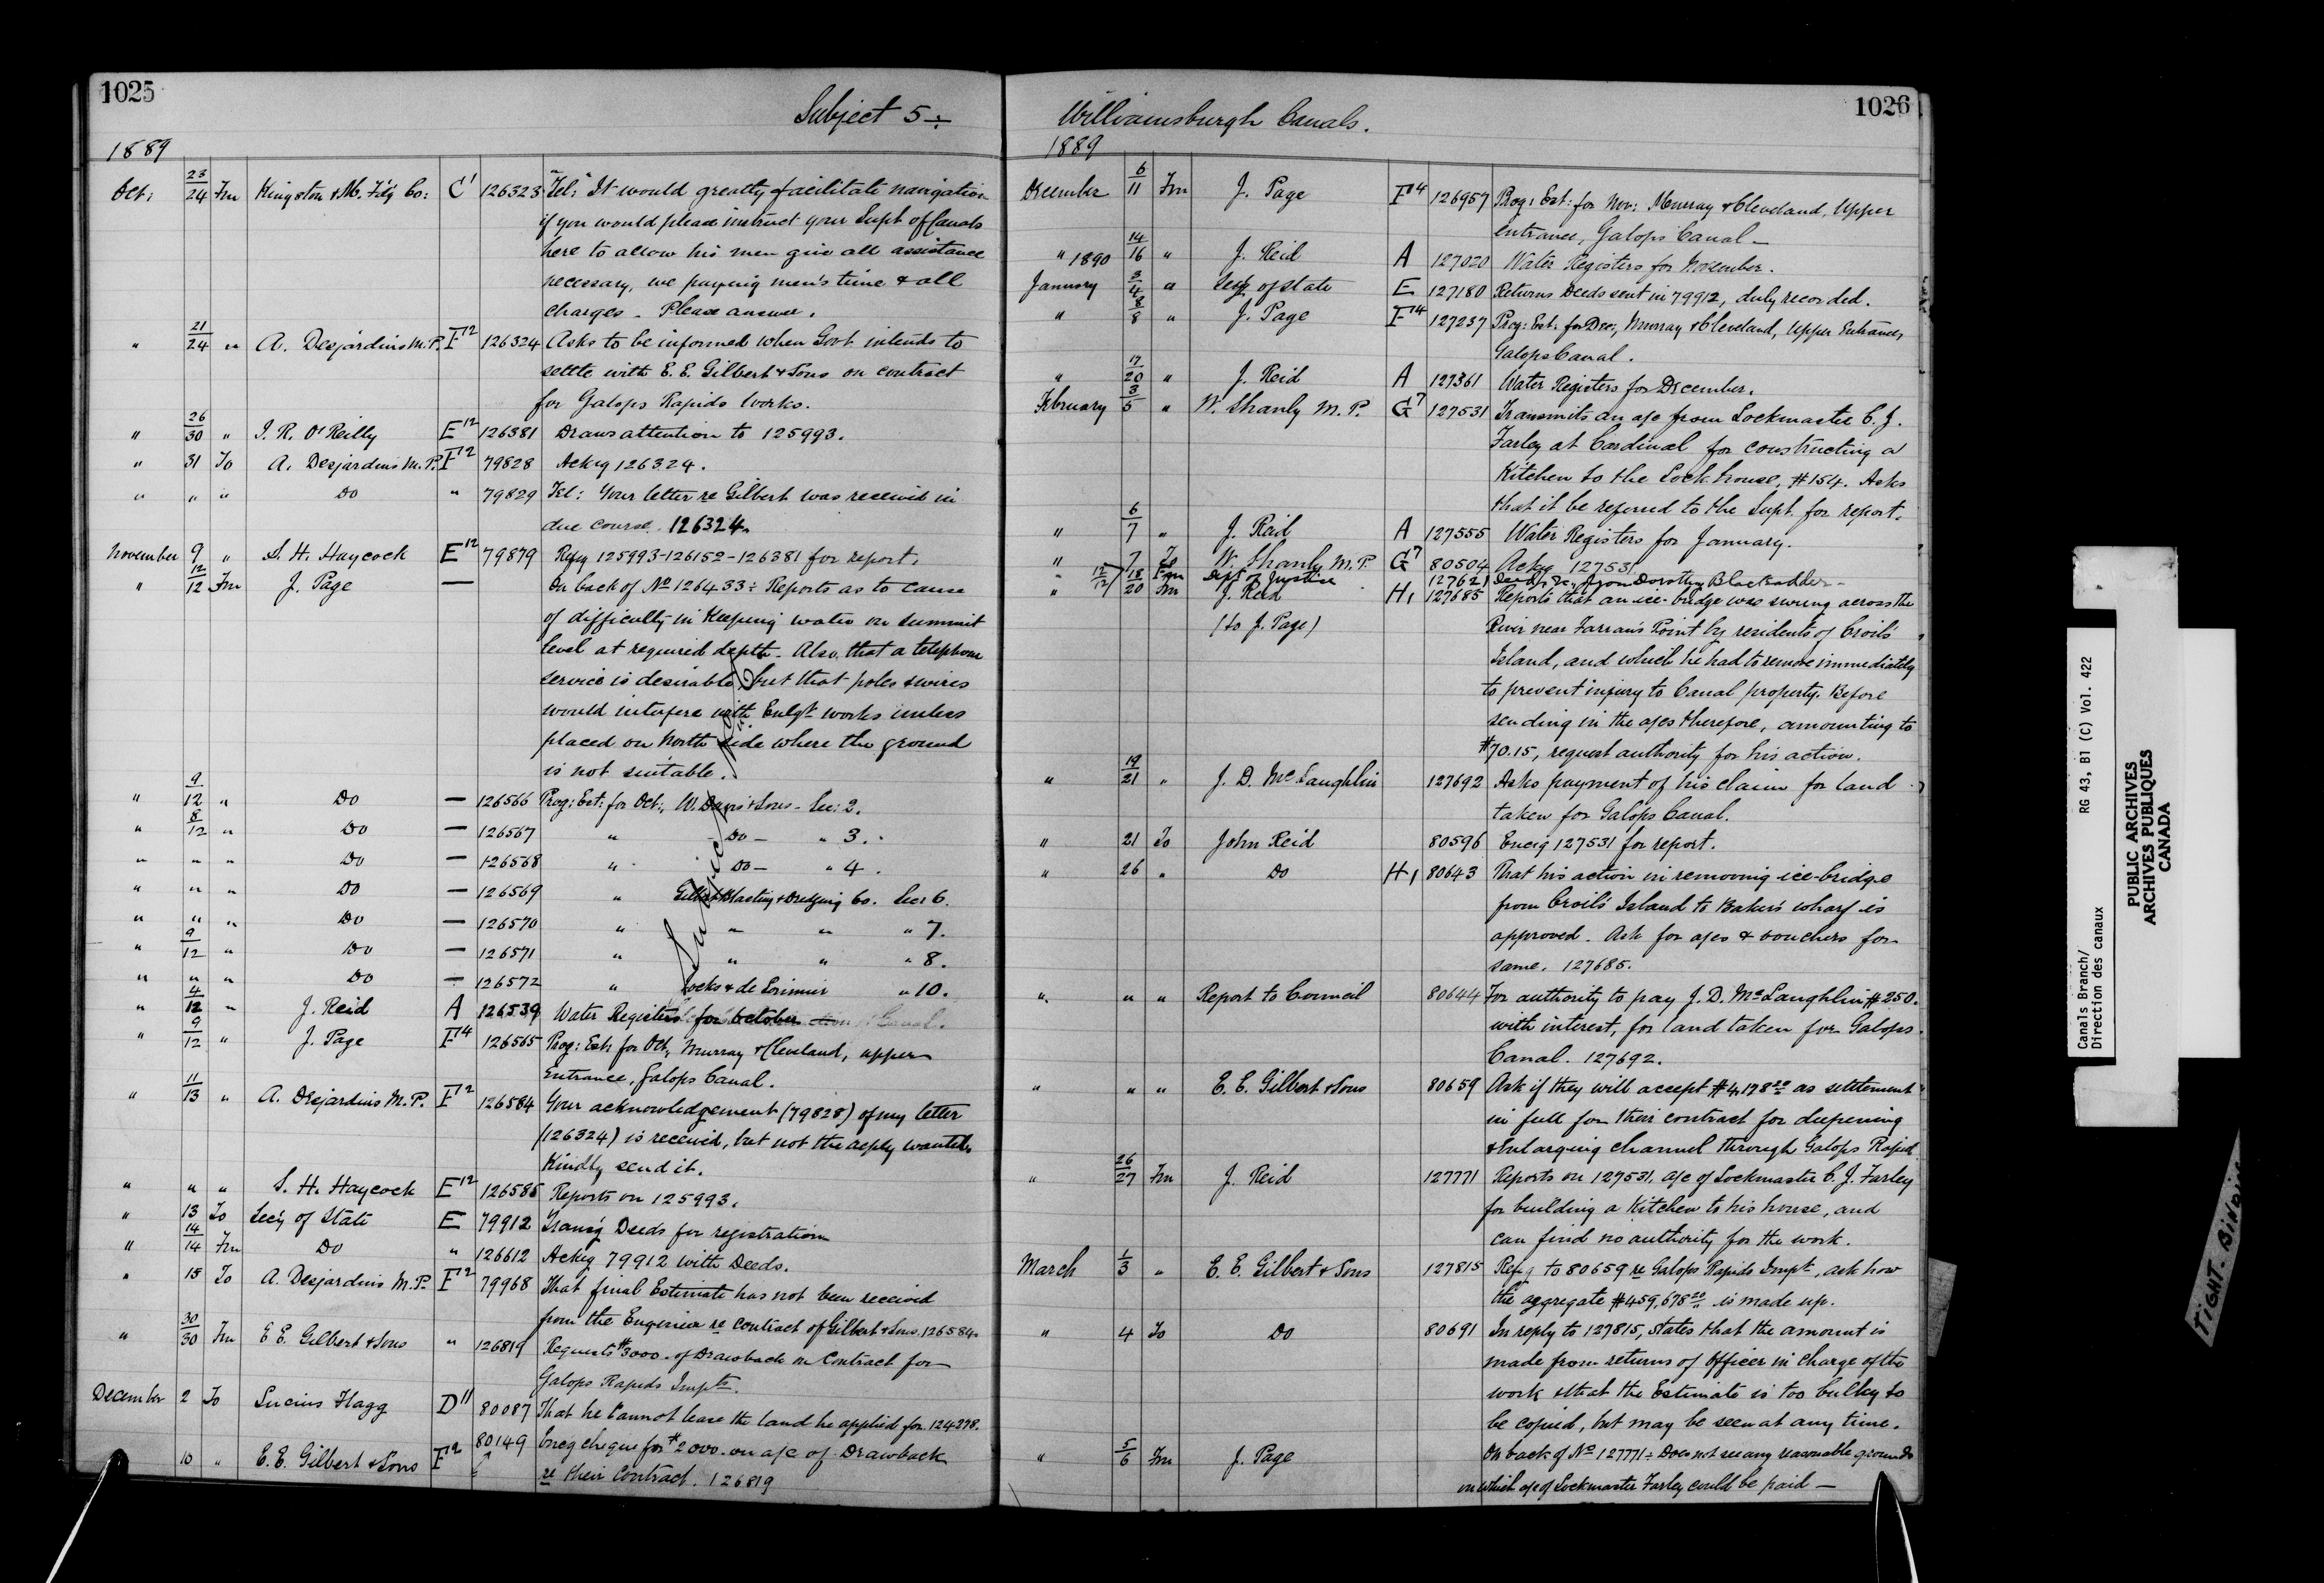 1025
Subject 5 ÷
1889
Oct: 23/24 Fm Kingston & M. Fd'g Co: C1 126323 "Tel:" It would greatly facilitate navigation
if you would please instruct your Supt of Canals
here to allow his men give all assistance
necessary, we paying men's time & all
charges. Please answer.
" 21/24 " A. Desjardins M.P. F12 126324 Asks to be informed when Govt intends to
settle with E. E. Gilbert & Sons on contract
for Galops Rapids works.
" 26/30 " J. R. O'Reilly E12 126381 Draws attention to 125993.
" 31 To A. Desjardins M.P. F12 79828 Ackg 126324.
" " " Do " 79829 Tel: Your letter re Gilbert was received in
due course. 126324.
November 9 " S. H. Haycock E12 79879 Refg 125993-126152-126381 for report.
" 12/12 Fm J. Page — On back of No 126433 ÷ Reports as to cause
of difficulty in keeping water on summit
level at required depth. Also, that a telephone
service is desirable, but that poles & wires
would interfere with Enlgt works unless
placed on North side where the ground
is not suitable.
" 9/12 " Do — 126566 Prog: Est: for Oct:, W. Davis & Sons - Sec: 2.
" 8/12 " Do — 126567 " - Do - " 3.
" " " Do — 126568 " Do - " 4.
" " " Do — 126569 " Gilbert Blasting & Dredging Co. Sec: 6.
" " " Do — 126570 " " " " 7.
" 9/12 " Do — 126571 " " " " 8.
" " " Do — 126572 " Jocks & de Lorimier " 10.
" 4/12 " J. Reid A 126539 Water Registers for October
" 9/12 " J. Page F14 126565 Prog: Est: for Oct, Murray & Cleveland, upper
Entrance, Galops Canal.
" 11/13 " A. Desjardins M.P. F12 126584 Your acknowledgement (79828) of my letter
(126324) is received, but not the reply wanted.
Kindly send it.
" " " S. H. Haycock E12 126585 Reports on 125993.
" 13 To Sec'y of State E 79912 Trans'g Deeds for registration
" 14/14 Fm Do " 126612 Ackg 79912 with Deeds.
" 15 To A. Desjardins M.P. F12 79968 That final Estimate has not been received
from the Engineer re contract of Gilbert & Sons. 126584.
" 30/30 Fm E. E. Gilbert & Sons " 126819 Requests $3000. of Drawback on Contract for
Galops Rapids Impts.
December 2 To Lucius Flagg D11 80087 That he cannot lease the land he applied for. 124278.
10 " E. E. Gilbert & Sons F12 80149 Encg cheque for $2000. on a/c of Drawback
re their Contract. 126819
1026
Williamsburgh Canals.
1889
December 6/11 Fm J. Page F14 126957 Prog: Est: for Nov: Murray & Cleveland, Upper
entrance, Galops Canal —
" 14/16 " J. Reid A 127020 Water Registers for November.
1890
January 3/4 " Secy of State E 127180 Returns Deeds sent in 79912, duly recorded.
" 8/8 " J. Page F14 127237 Prog: Est: for Dec:, Murray & Cleveland, Upper Entrance,
Galops Canal.
" 17/20 " J. Reid A 127361 Water Registers for December.
February 3/5 " W. Shanly M.P. G7 127531 Transmits an a/c from Lockmaster C. J.
Farley at Cardinal for constructing a
Kitchen to the Lock house, $154. Asks
that it be referred to the Supt. for report.
" 6/7 " J. Reid A 127555 Water Registers for January.
" 7 To W. Shanly M.P. G7 80504 Ackg 127531
" 18 Fm Dept of Justice 127621 Deed, &c, from Dorothy Blackadder -
" 20 Fm J. Reid H1 127685 Reports that an ice-bridge was swung across the
(to J. Page) River near Farran's Point by residents of Croil's
Island, and which he had to remove immediately
to prevent injury to Canal property. Before
sending in the a/cs therefore, amounting to
$70.15, request authority for his action.
" 19/21 " J. D. McLaughlin 127692 Asks payment of his claim for land
taken for Galops Canal.
" 21 To John Reid 80596 Encg 127531 for report.
" 26 " Do H1 80643 That his action in removing ice-bridge
from Croil's Island to Baker's wharf is
approved. Ask for a/cs & vouchers for
same. 127685.
" " " Report to Council 80644 For authority to pay J. D. McLaughlin $250.
with interest, for land taken for Galops
Canal. 127692.
" " " E. E. Gilbert & Sons 80659 Ask if they will accept $4,178.20 as settlement
in full for their contract for deepening
& enlarging channel through Galops Rapid
" 26/27 Fm J. Reid 127771 Reports on 127531, a/c of Lockmaster C. J. Farley
for building a Kitchen to his house, and
can find no authority for the work.
March 1/3 " E. E. Gilbert & Sons 127815 Refg to 80659 re Galops Rapids Impt, ask how
the aggregate $459,678.20 is made up.
" 4 To Do 80691 In reply to 127815, states that the amount is
made from returns of Officer in charge of the
work & that the Estimate is too bulky to
be copied, but may be seen at any time.
" 5/6 Fm J. Page On back of No 127771 ÷ Does not see any reasonable grounds
on which a/c of Lockmaster Farley could be paid —
Canals Branch/
Direction des canaux
RG 43, B1 (C) Vol. 422
PUBLIC ARCHIVES
ARCHIVES PUBLIQUES
CANADA
TIGHT BINDING